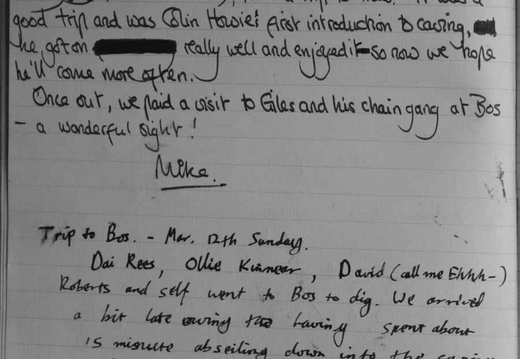 good trip and was Colin Howie's first introduction to caving,
he got on really well and enjoyed it - so now we hope
he'll come more often.
Once out, we paid a visit to Giles and his chain gang at Bos
- a wonderful sight!
Mike.
Trip to Bos. - Mar. 12th Sunday.
Dai Rees, Ollie, David (call me Ehhh-)
Roberts and self went to Bos to dig. We arrived
a bit late owing to having spent about
15 minute abseiling down into the